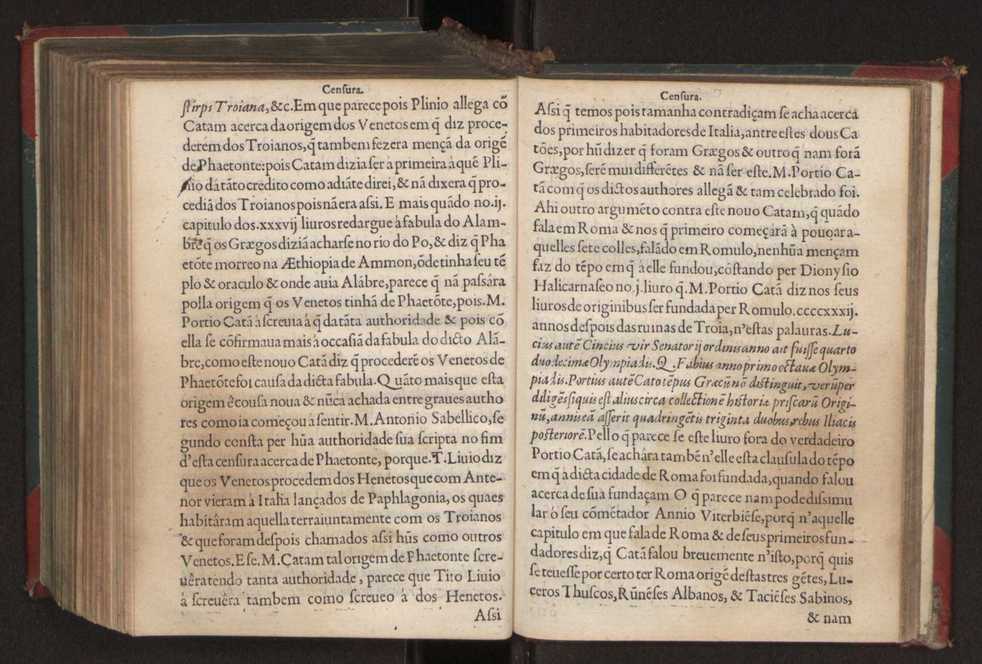 Censura.
stirps Troiana, &c. Em que parece pois Plinio allega cõ
Catam acerca da origem dos Venetos em q̃ diz proce-
derem dos Troianos, q̃ tambem fezera mençã da origẽ
de Phaetonte: pois Catam dizia ser a primeira à què Pli-
nio dà tàto credito como adiãte direi, & nã dixera q̃ pro-
cediã dos Troianos pois nã era assi. E mais quãdo no .ij.
capitulo dos .xxxvij liuros redargue à fabula do Alam-
bre q̃ os Græegos diziã acharse no rio do Po, & diz q̃ Pha
etõte morreo na Æthiopia de Ammon, õde tinha seu tẽ
plo & oraculo & onde auia Alãbre, parece q̃ nã passàra
polla origem q̃ os Venetos tinhã de Phaetõte, pois. M.
Portio Catã à screuia à q̃ da tãta authoridade & pois cõ
ella se cõfirmaua mais à occasiã da fabula do dicto Alã-
bre, como este nouo Catã diz q̃ procederẽ os Venetos de
Phaetõte foi causa da dicta fabula. Quãto mais que esta
origem ẽ cousa noua & nũca achada entre graues autho
res como ia começou à sentir. M. Antonio Sabellico, se
gundo consta per hũa authoridade sua scripta no fim
d'esta censura acerca de Phaetonte, porque. T. Liuio diz
que os Venetos procedem dos Henetos que com Ante-
nor vieram à Italia lançados de Paphlagonia, os quaes
habitàram aquella terra iuntamente com os Troianos
& que foram despois chamados assi hũs como outros
Venetos. E se. M. Catam tal origem de Phaetonte scre-
uèra tendo tanta authoridade, parece que Tito Liuio
à screuèra tambem como screueo à dos Henetos.
Assi
Censura.
Assi q̃ temos pois tamanha contradiçam se acha acerca
dos primeiros habitadores de Italia, antre estes dous Ca
tões, por hũ dizer q̃ foram Grægos & outro q̃ nam forã
Grægos, serẽ mui differẽtes & nã ser este. M. Portio Ca-
tã com q̃ os dictos authores allegã & tam celebrado foi.
Ahi outro argumẽto contra este nouo Catam, q̃ quãdo
fala em Roma & nos q̃ primeiro começarã à pouoar a-
quelles sete colles, falãdo em Romulo, nenhũa mençam
faz do tẽpo em q̃ à elle fundou, cõstando per Dionysio
Halicarnaseo no .j. liuro q̃. M. Portio Catã diz nos seus
liuros de originibus ser fundada per Romulo .ccccxxxij.
annos despois das ruinas de Troia, n'estas palauras. Lu-
cius autẽ Cincius vir Senatorij ordinis anno ait fuisse quarto
duodecimæ Olympiadis. Q. Fabius anno primo octauæ Olym-
piadis. Portius autẽ Cato tẽpus Græcũ nõ distinguit, verũ per
ddigẽs si quis est alius circa collectionẽ historiæ priscarũ Origi-
nũ, annis eã asserit quadringẽtis triginta duobus, rebus Iliacis
posteriorẽ. Pello q̃ parece se este liuro fora do verdadeiro
Portio Catã, se achàra tambẽ n'elle esta clausula do tẽpo
em q̃ a dicta cidade de Roma foi fundada, quando falou
acerca de sua fundaçam. O q̃ parece nam pode dissimu
lar o seu cõmẽtador Annio Viterbiẽse, porq̃ n'aquelle
capitulo em que fala de Roma & de seus primeiros fun-
dadores diz, q̃ Catã falou breuemente n'isto, porq̃ quis
se teuesse por certo ter Roma origẽ destas tres gẽtes, Lu-
ceros Thuscos, Rũnẽses Albanos, & Taciẽses Sabinos,
& nam